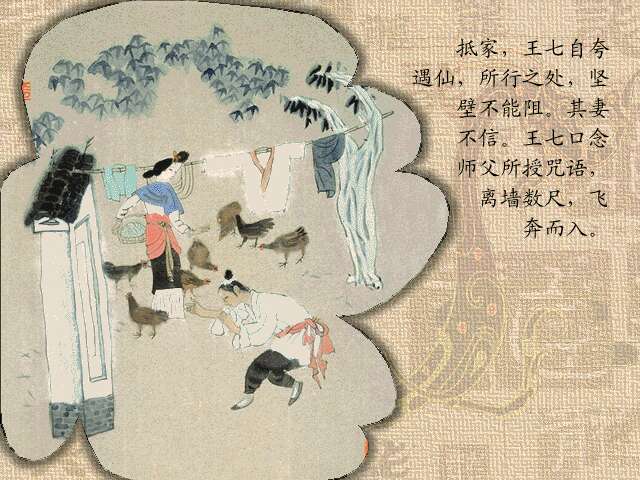 抵家，王七自夸
遇仙，所行之处，坚
壁不能阻。其妻
不信。王七口念
师父所授咒语，
离墙数尺，飞
奔而入。